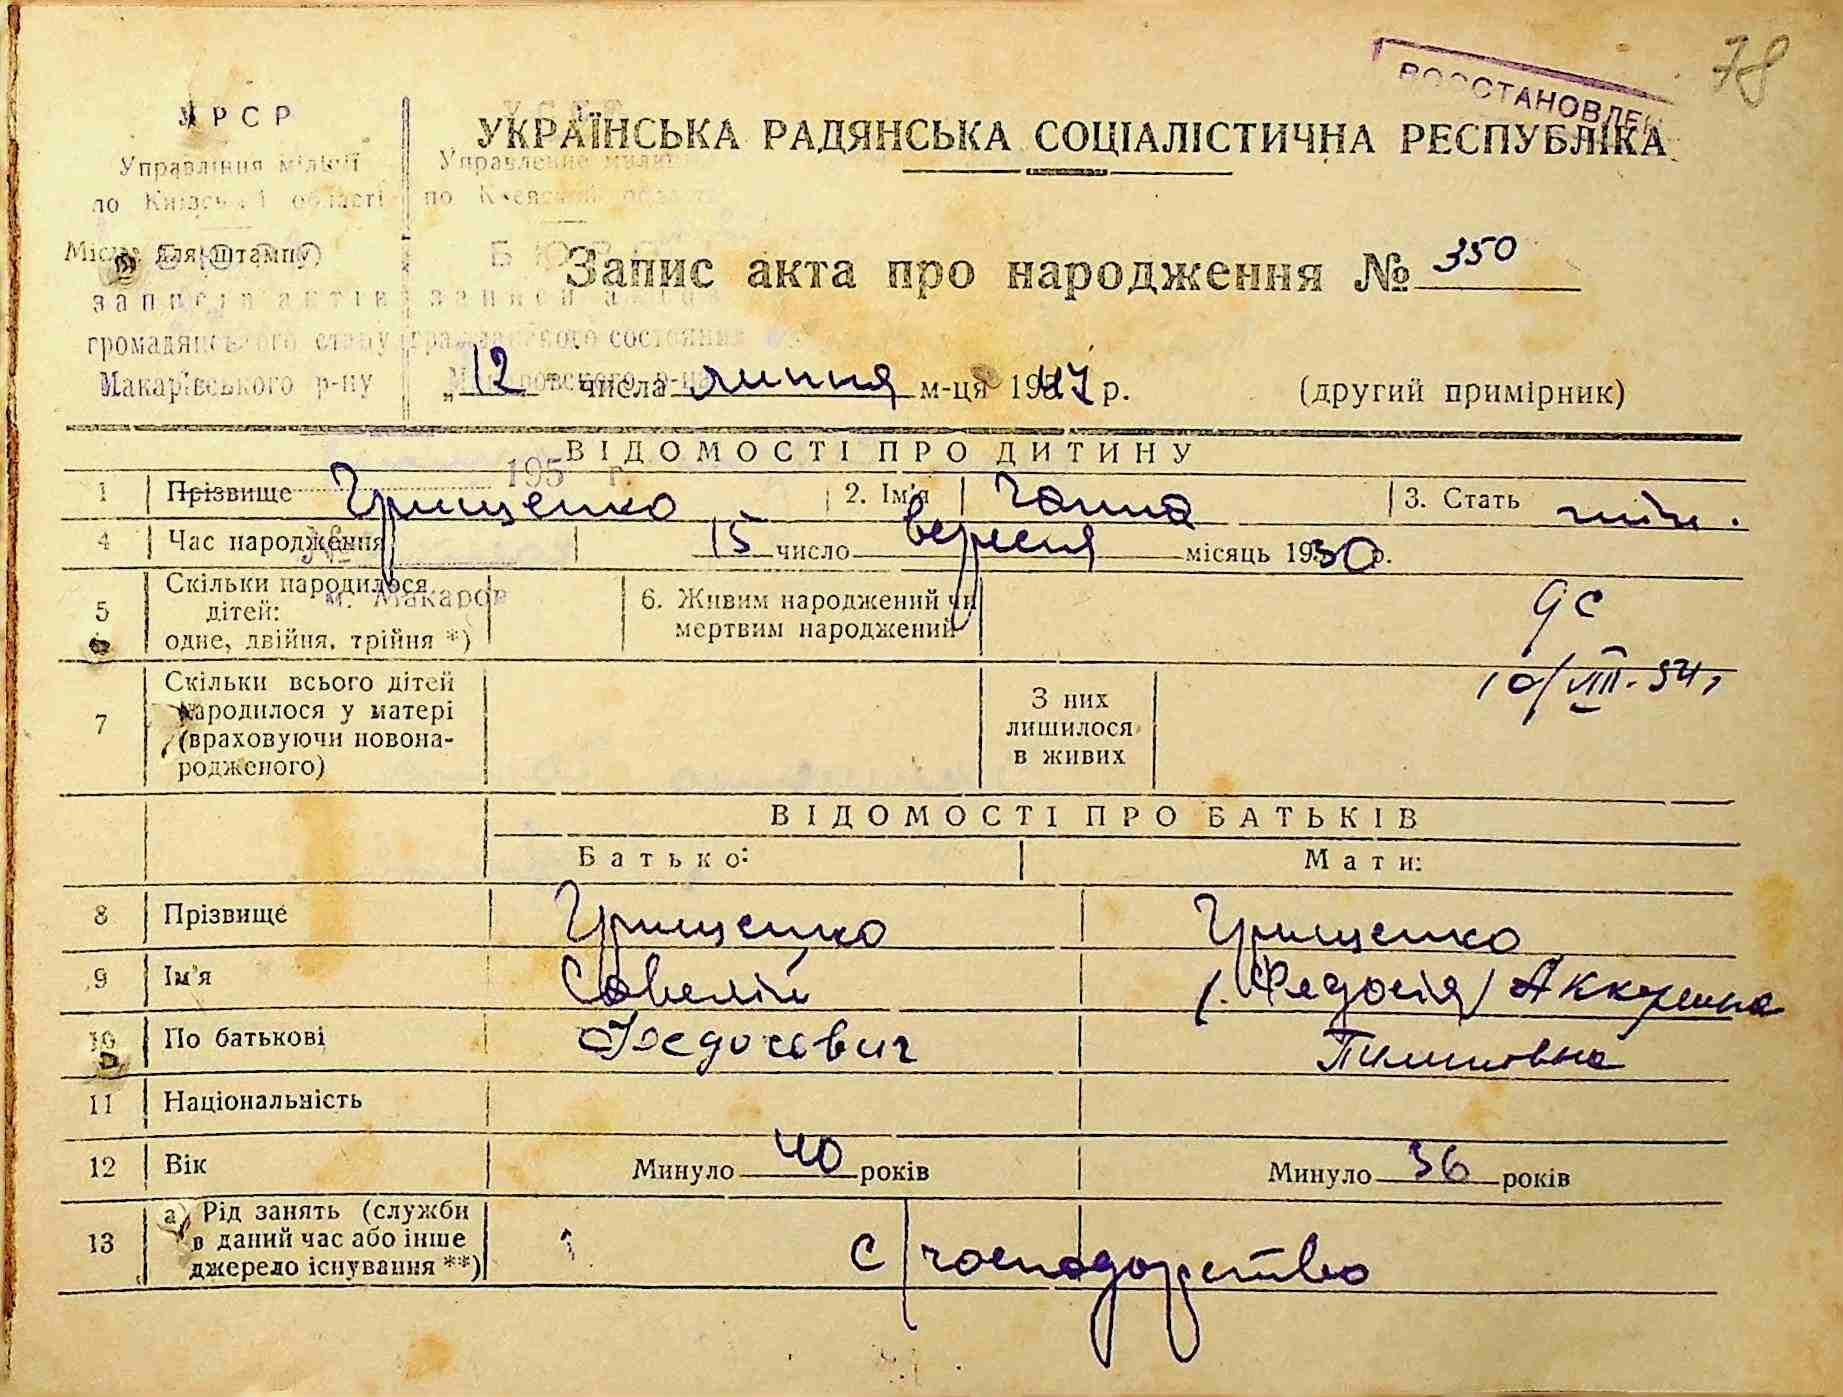 78
ВОССТАНОВЛЕН
УРСР
УКРАЇНСЬКА РАДЯНСЬКА СОЦІАЛІСТИЧНА РЕСПУБЛІКА
Управління міліції Управление милиции
по Київській області по Киевской области
Місце для штампу) БЮРО
Запис акта про народження № 350
записів актів записи актов
громадянського стану гражданского состояния
Макарівського р-ну Макаровского р-на
„12" числа липня м-ця 1947 р. (другий примірник)
ВІДОМОСТІ ПРО ДИТИНУ
195 г.
1 Прізвище Грищенко 2. Ім'я Ганна 3. Стать жін.
4 Час народження 15 число вересня місяць 1930 р.
м. Макаров
5 Скільки народилося
дітей:
одне, двійня, трійня *)
6. Живим народжений чи
мертвим народжений
10/VIII-54 г
7 Скільки всього дітей
народилося у матері
(враховуючи новона-
родженого)
З них
лишилося
в живих
ВІДОМОСТІ ПРО БАТЬКІВ
Батько: Мати:
8 Прізвище Грищенко Грищенко
9 Ім'я Савелій (Федосія)
10 По батькові Федосович Пилиповна
11 Національність
12 Вік Минуло 40 років Минуло 36 років
13 а) Рід занять (служби
в даний час або інше
джерело існування **)
с/господарство